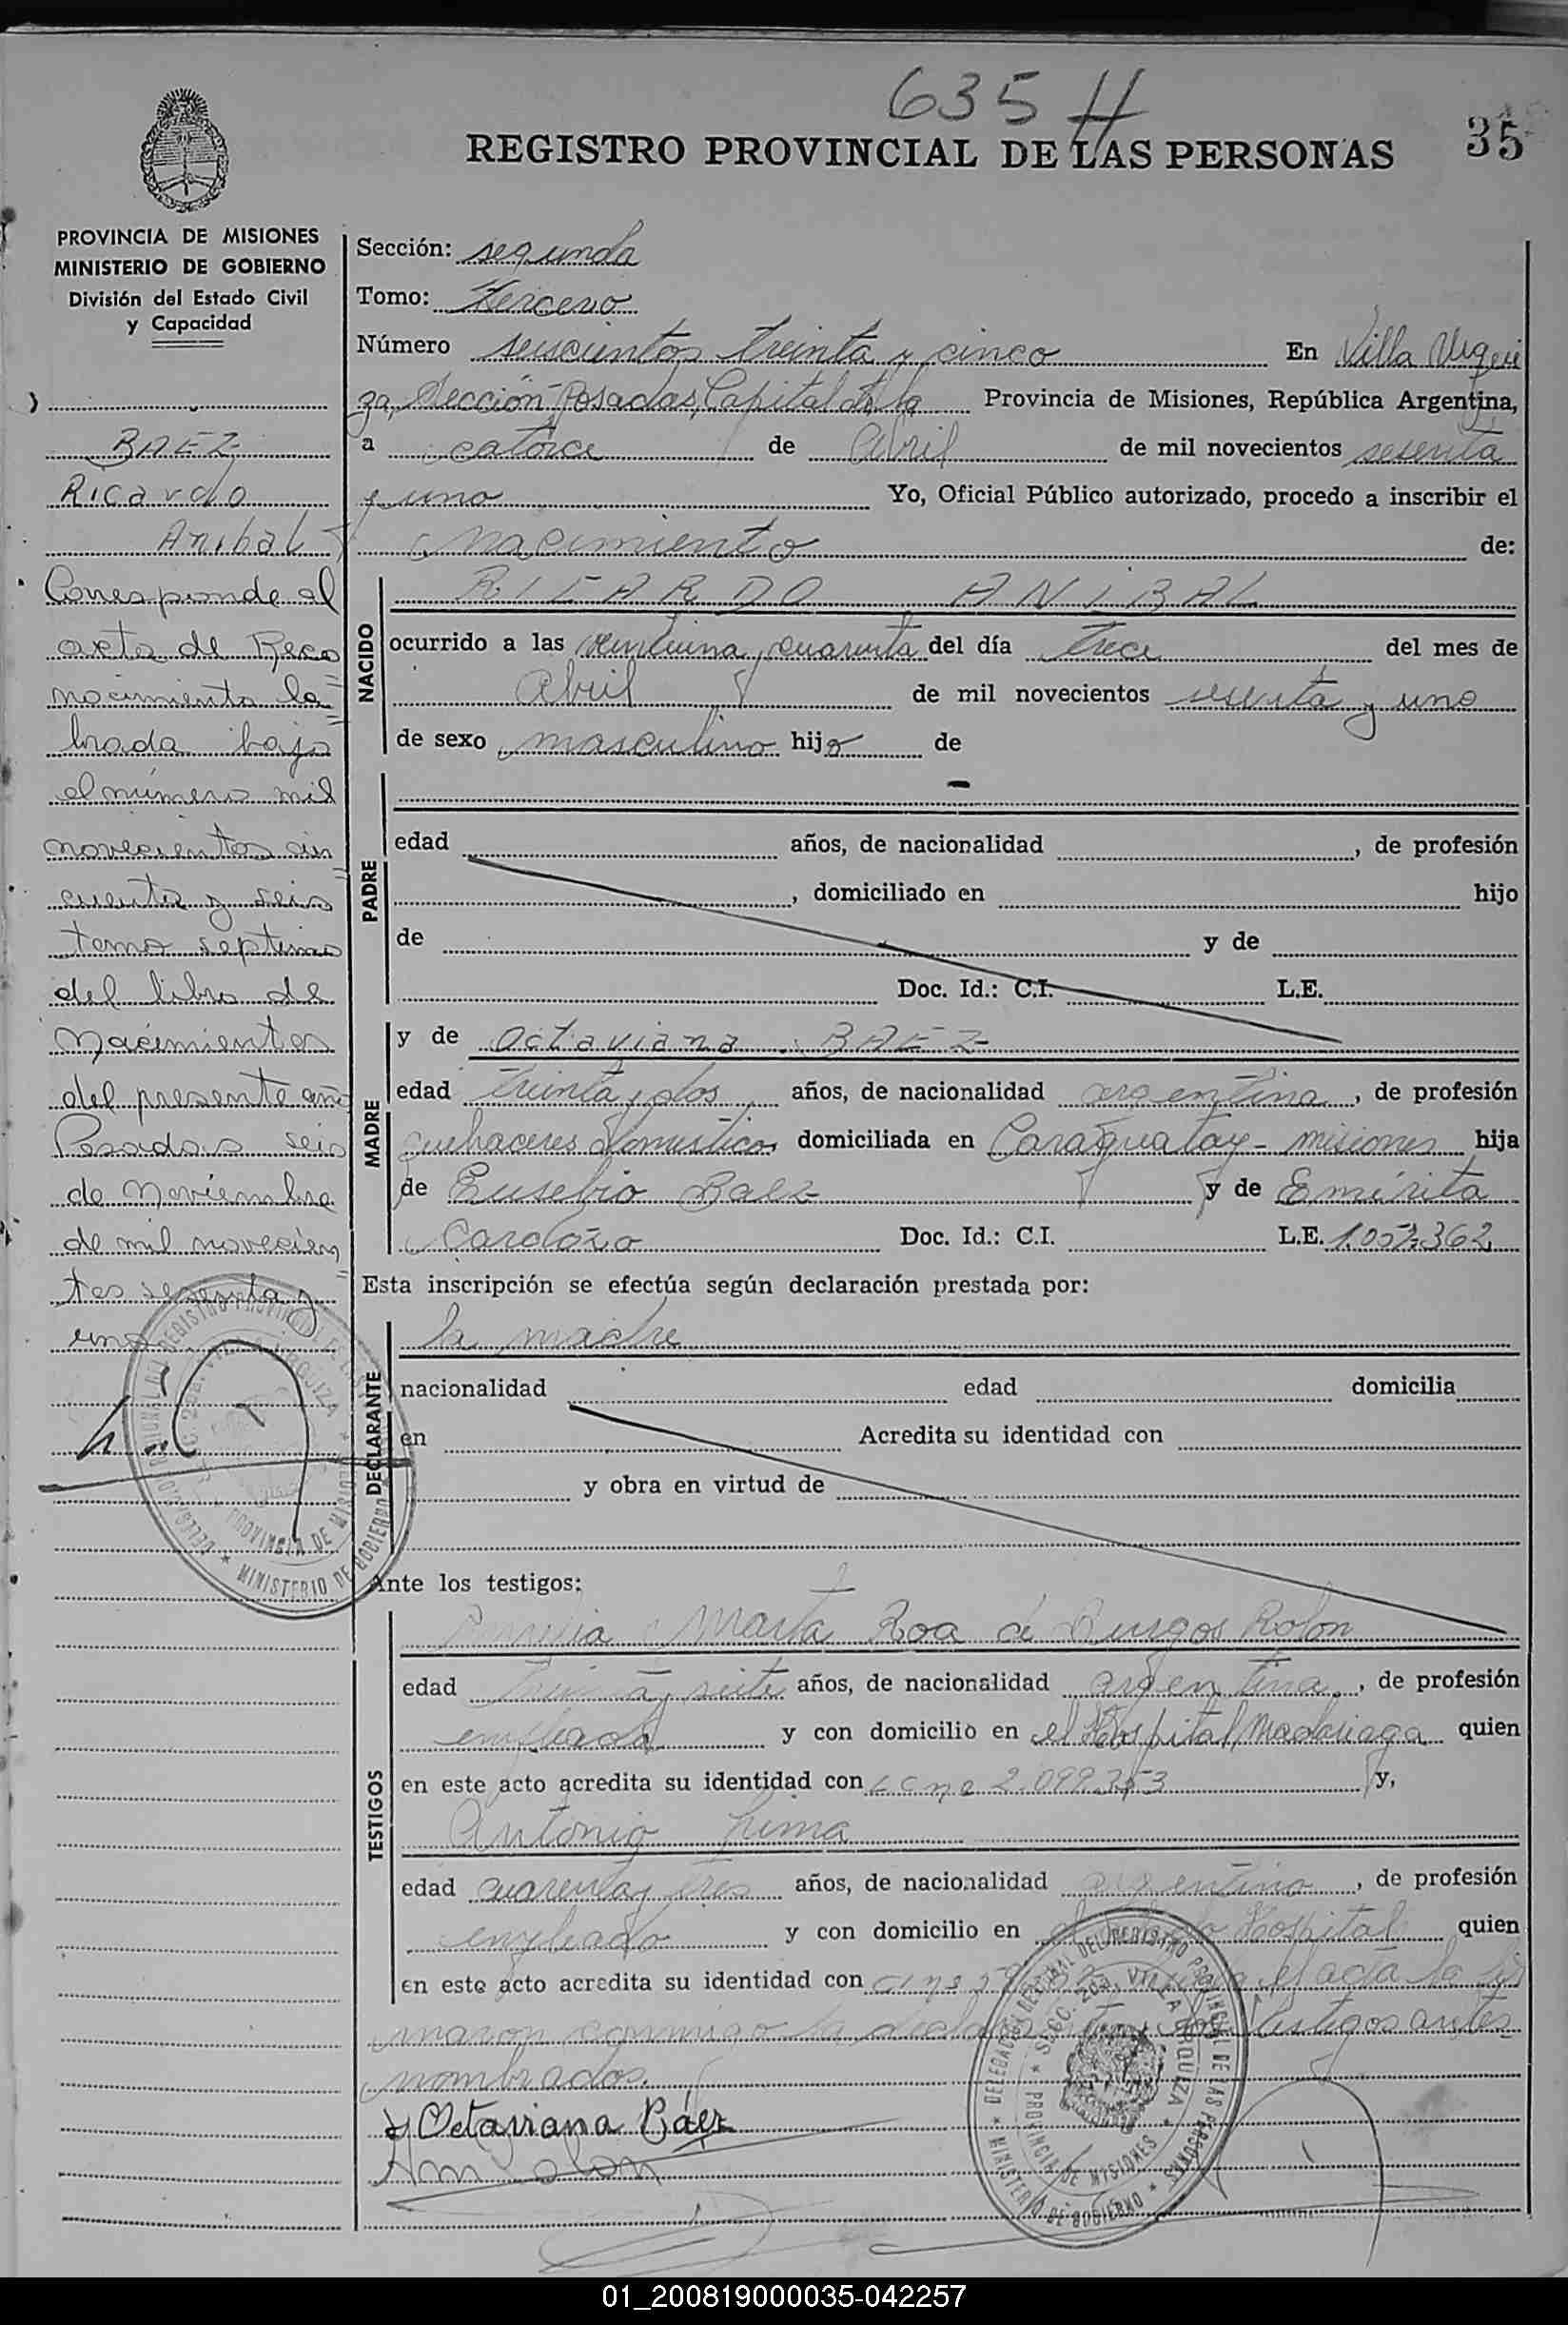 635 H
REGISTRO PROVINCIAL DE LAS PERSONAS
35
PROVINCIA DE MISIONES
MINISTERIO DE GOBIERNO
División del Estado Civil
y Capacidad
BAEZ
Ricardo
Anibal
Corresponde al
acta de Reco
nocimiento la=
brada bajo
el número mil
novecientos cin=
cuenta y seis
tomo septimo
del libro de
Nacimientos
del presente año
Posadas seis
de Noviembre
de mil novecien=
tos sesenta y
uno
Sección: segunda
Tomo: Tercero
Número seiscientos treinta y cinco En Villa Urqui
za, Sección Posadas, Capital de la Provincia de Misiones, República Argentina,
a catorce de Abril de mil novecientos sesenta
y uno Yo, Oficial Público autorizado, procedo a inscribir el
Nacimiento de:
NACIDO
RICARDO ANIBAL
ocurrido a las veintiuna y cuarenta del día trece del mes de
Abril de mil novecientos sesenta y uno
de sexo masculino hijo de
PADRE
edad años, de nacionalidad , de profesión
, domiciliado en hijo
de y de
Doc. Id.: C.I. L.E.
MADRE
y de Octaviana BAEZ
edad treinta y dos años, de nacionalidad argentina, de profesión
quehaceres domesticos domiciliada en Caraguatay - misiones hija
de Eusebio Baez y de Emérita
Cardozo Doc. Id.: C.I. L.E. 1.057.362
Esta inscripción se efectúa según declaración prestada por:
DECLARANTE
la madre
nacionalidad edad domicilia
en Acredita su identidad con
y obra en virtud de
Ante los testigos:
TESTIGOS
Marta Roa de Burgos Rolon
edad treinta y siete años, de nacionalidad argentina, de profesión
empleada y con domicilio en el Hospital Madariaga quien
en este acto acredita su identidad con y,
Antonio Lima
edad cuarenta y tres años, de nacionalidad argentino, de profesión
empleado y con domicilio en Hospital quien
en este acto acredita su identidad con el acta la fir
maron conmigo la testigos antes
nombrados.
Octaviana Báez
DELEGACION DECIONAL DEL REGISTRO PROVINCIAL DE LAS PERSONAS
SECC. 2da. VILLA URQUIZA
PROVINCIA DE MISIONES
MINISTERIO DE GOBIERNO
01_200819000035-042257